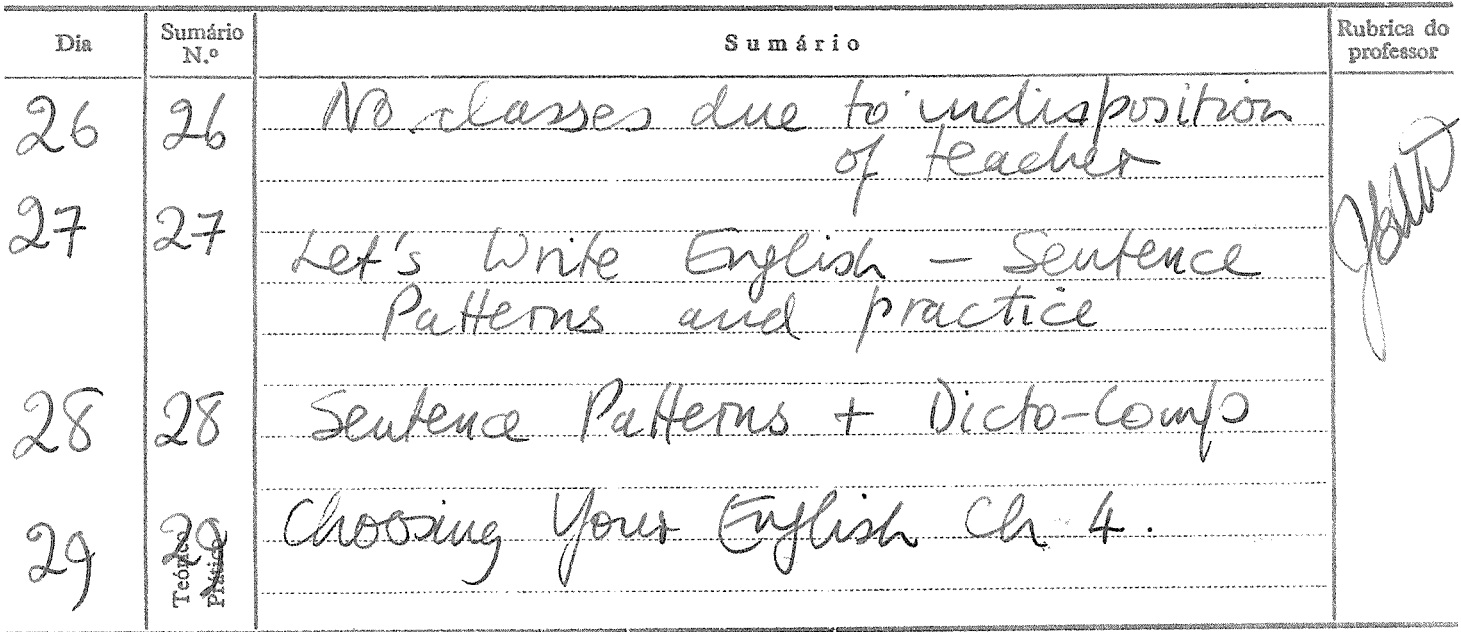 Dia Sumário N.º Sumário Rubrica do professor
26 26 No classes due to indisposition
of teacher
27 27 Let's Write English – Sentence
Patterns and practice
28 28 Sentence Patterns + Dicto-Comp
29 29 Choosing Your English Ch 4.
Teórico
Prático